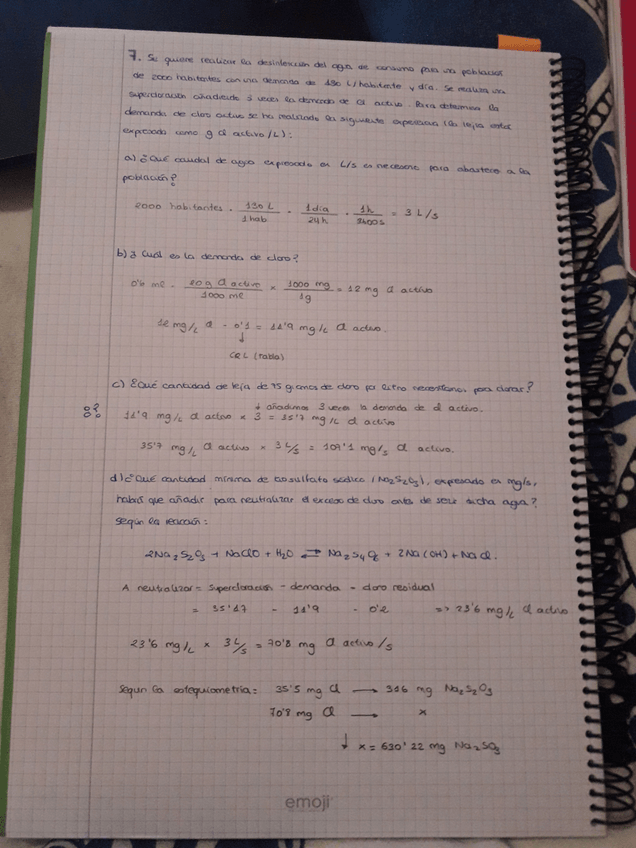 7. Se quiere realizar la desinfección del agua de consumo para una población
de 2000 habitantes con una demanda de 130 L/habitante y día. Se realiza una
supercloración añadiendo 3 veces la demanda de Cl activo. Para determinar la
demanda de cloro activo se ha realizado la siguiente experiencia (la lejía está
expresada como g Cl activo/L):
a) ¿Qué caudal de agua expresado en L/s es necesario para abastecer a la
población?
2000 habitantes · 130 L / 1 hab · 1 día / 24h · 1h / 3600s = 3 L/s
b) ¿Cuál es la demanda de cloro?
0'6 ml · 20 g Cl activo / 1000 ml × 1000 mg / 1g = 12 mg Cl activo
12 mg/L Cl - 0'1 = 11'9 mg/L Cl activo.
↓
CRL (tabla)
c) ¿Qué cantidad de lejía de 75 gramos de cloro por litro necesitamos para clorar?
↓ añadimos 3 veces la demanda de Cl activo.
11'9 mg/L Cl activo × 3 = 35'7 mg/L Cl activo
35'7 mg/L Cl activo × 3 L/s = 107'1 mg/s Cl activo.
d) ¿Qué cantidad mínima de tiosulfato sódico (Na2S2O3), expresado en mg/s,
habrá que añadir para neutralizar el exceso de cloro antes de dicha agua?
Según la reacción:
2Na2S2O3 + NaClO + H2O ⇄ Na2S4O6 + 2Na(OH) + NaCl.
A neutralizar = supercloración - demanda - cloro residual
= 35'17 - 11'9 - 0'2 => 23'6 mg/L Cl activo
23'6 mg/L × 3 L/s = 70'8 mg Cl activo/s
Según la estequiometría = 35'5 mg Cl → 316 mg Na2S2O3
70'8 mg Cl → x
↓ x = 630'22 mg Na2SO3
emoji